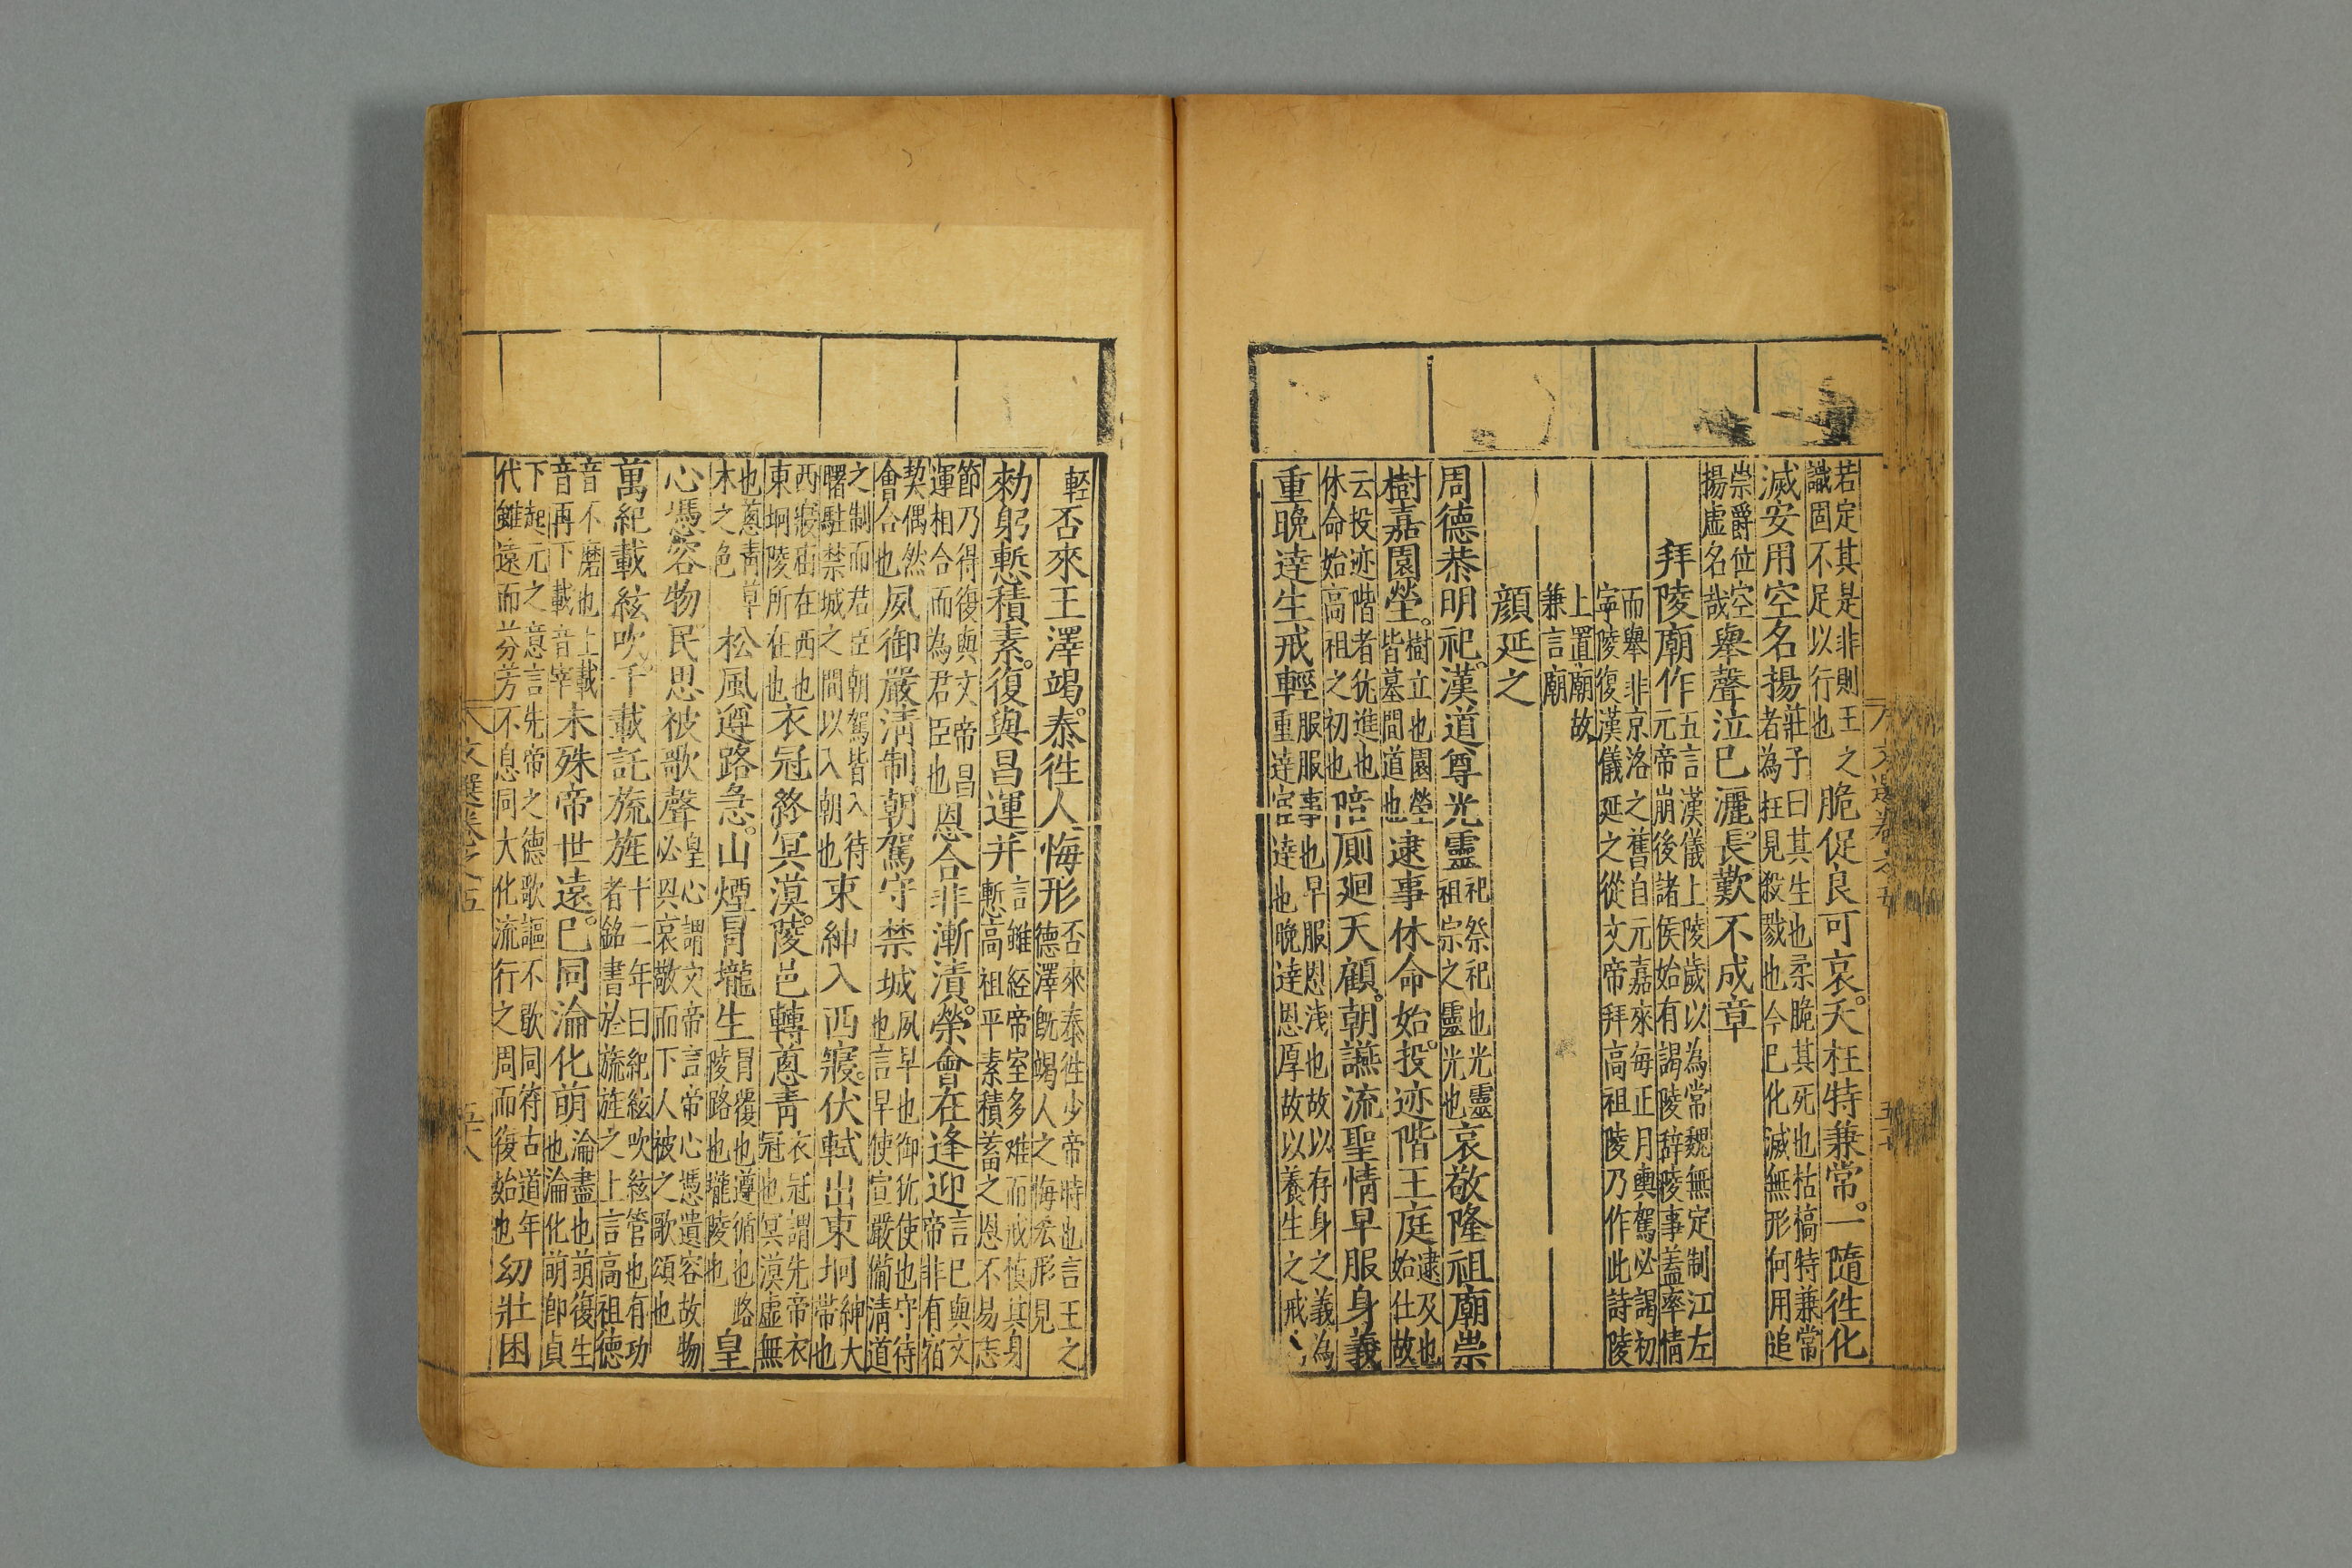 若定其是非則王之
識固不足以行也
脆促良可哀。夭枉特兼常。一隨徃化
滅安用空名揚
莊子曰其生也柔脆其死也枯槁特兼常
者為枉見殺戮也今巳化滅無形何用追
崇爵位空
揚虛名哉
舉聲泣巳灑。長歎不成章
拜陵廟作
五言漢儀上陵歲以為常魏無定制江左
元帝崩後諸侯始有謁陵辞陵事蓋率情
而舉非京洛之舊自元嘉來每正月輿駕必謁初
寧陵復漢儀延之從文帝拜高祖陵乃作此詩陵
上置廟故
兼言廟
顔延之
周德恭明祀。漢道尊光靈
祀祭祀也光靈
祖宗之靈光也
哀敬隆祖廟崇
樹嘉園塋。
樹立也園塋
皆墓間道也
逮事休命始。投迹階王庭
逮及也
始仕故
云投迹階者犹進也
休命始高祖之初也
陪厠廻天顧。朝讌流聖情早服身義
重晚達生戒輕
服服事也早服恩浅也故以存身之義為
重達宦達也晚達恩厚故以養生之戒
輕
否來王澤竭。泰徃人悔形
否來泰徃少帝時也言王之
德澤既竭人之悔㳒形見
勑躬慙積素。復與昌運并
言雖経帝室多难而戒慎其身
慙高祖平素積蓄之恩不易志
節乃得復與文帝昌
運相合而為君臣也
恩合非漸漬。榮會在逢迎
言巳與文
帝非有宿
契偶然
會合也
夙御嚴淸制。朝駕守禁城
夙早也御犹使也守待
也言早使宣嚴備淸道
之制而君臣朝駕皆入待
曙駐禁城之間以入朝也
束紳入西寢。伏軾出東坰
紳大
帶也
西寢廟在西也
東坰陵所在也
衣冠終冥漠。陵邑轉蔥靑
衣冠謂先帝衣
冠也冥漠虛無
也蔥靑草
木之色
松風遵路急。山煙冒壠生
冒覆也遵循也路
陵路也壠陵也
皇
心憑容物民思被歌聲
皇心謂文帝言帝心憑遺容故物
必興哀敬而下人被之歌頌也
萬紀載絃吹。千載託旒旌
十二年曰紀絃吹絃管也有功
者銘書於旒旌之上言高祖德
音不磨也上載
音再下載音宰
未殊帝世遠。巳同淪化萌
淪盡也萌復生
也淪化萌卽貞
下起元之意言先帝之德歌謳不歇同符古道年
代雖遠而芬芳不息同大化流行之周而復始也
幼壯困
文選卷之五